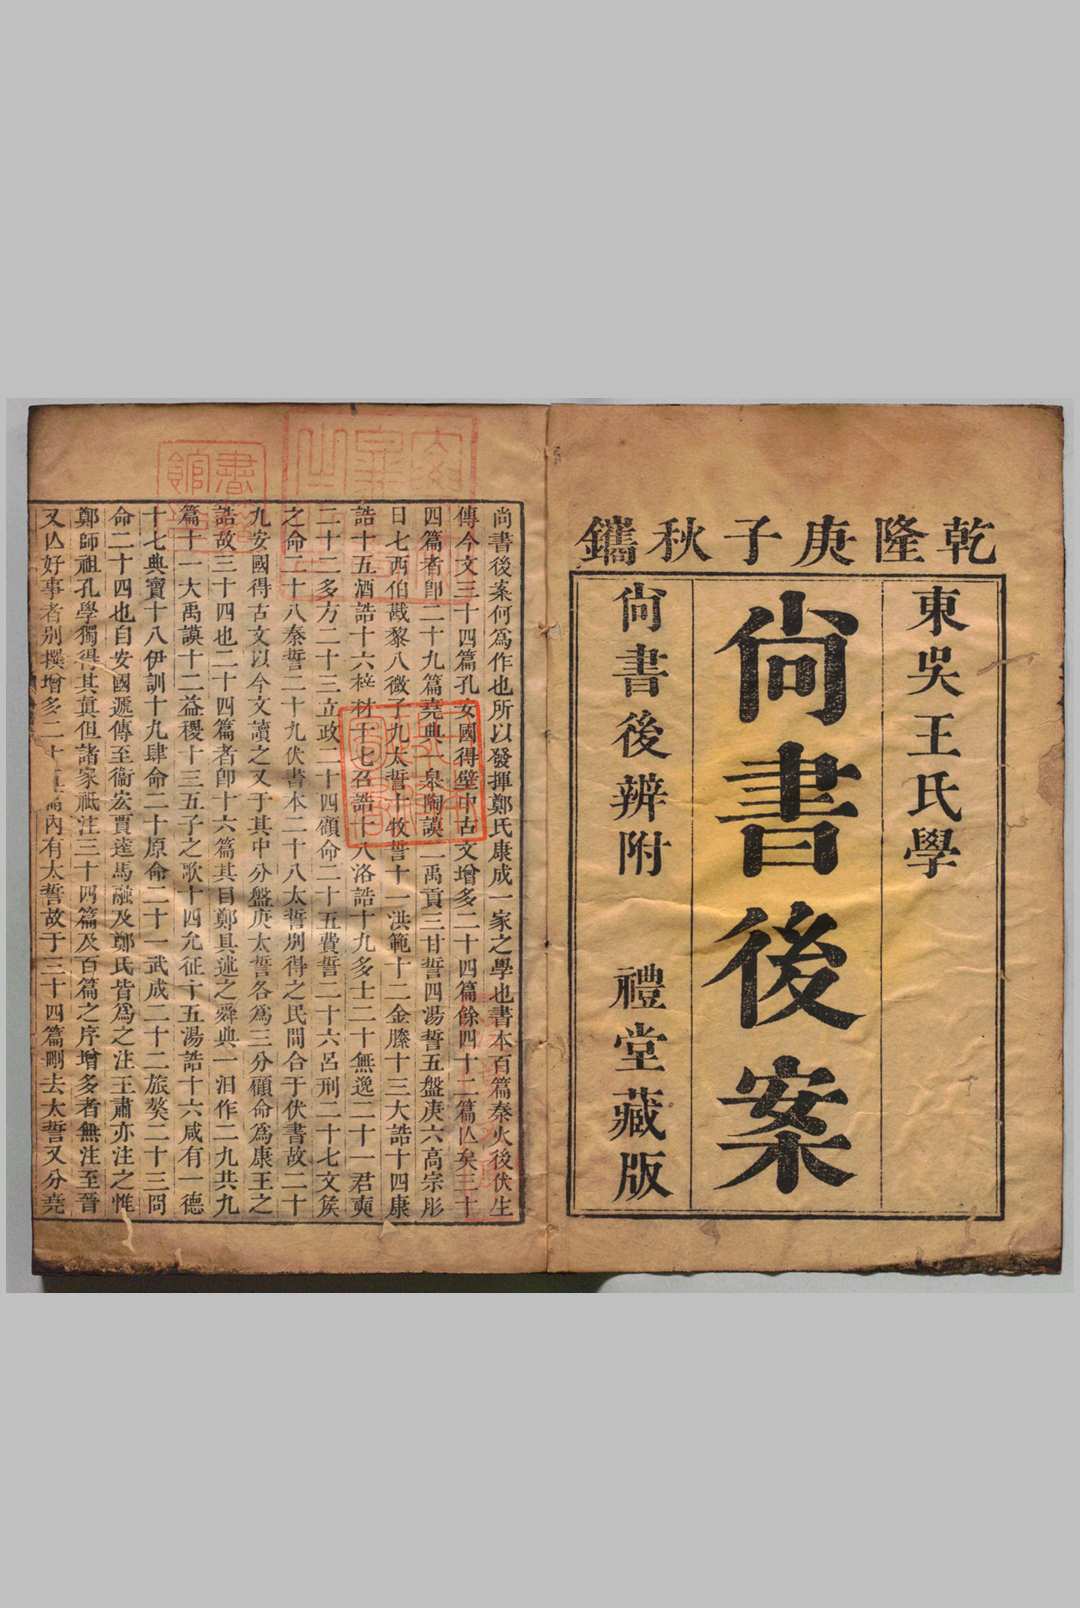 乾隆庚子秋鐫
東吳王氏學
尚書後案
尚書後辨附　禮堂藏版
尚書後案何爲作也所以發揮鄭氏康成一家之學也書本百篇秦火後伏生
傳今文三十四篇孔安國得壁中古文增多二十四篇餘四十二篇亾矣三十
四篇者卽二十九篇堯典一皋陶謨二禹貢三甘誓四湯誓五盤庚六高宗肜
日七西伯戡黎八微子九太誓十牧誓十一洪範十二金縢十三大誥十四康
誥十五酒誥十六梓材十七召誥十八洛誥十九多士二十無逸二十一君奭
二十二多方二十三立政二十四顧命二十五費誓二十六呂刑二十七文侯
之命二十八秦誓二十九伏書本二十八太誓別得之民間合于伏書故二十
九安國得古文以今文讀之又于其中分盤庚太誓各爲三分顧命爲康王之
誥故三十四也二十四篇者卽十六篇其目鄭具述之舜典一汩作二九共九
篇十一大禹謨十二益稷十三五子之歌十四允征十五湯誥十六咸有一德
十七典寶十八伊訓十九肆命二十原命二十一武成二十二旅獒二十三冏
命二十四也自安國遞傳至衞宏賈逵馬融及鄭氏皆爲之注王肅亦注之惟
鄭師祖孔學獨得其眞但諸家祇注三十四篇及百篇之序增多者無注至晉
又亾好事者別撰增多二十五篇內有太誓故于三十四篇刪去太誓又分堯